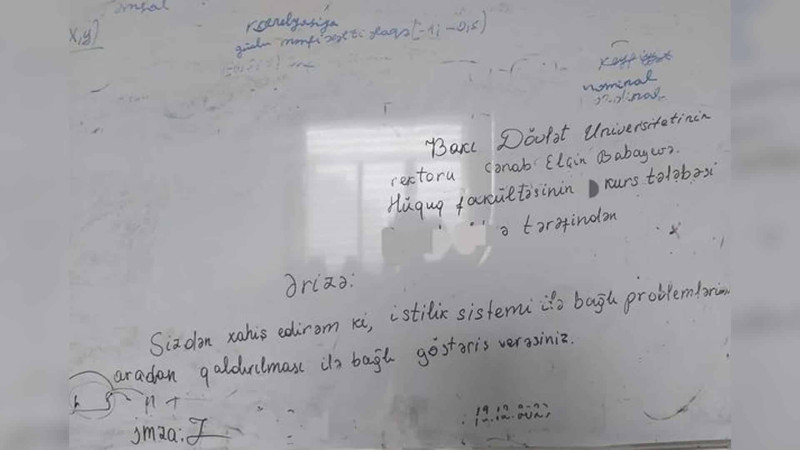 x,y)
Korelyasiya
nominal
Bakı Dövlət Universitetinin
rektoru cənab Elçin Babayevə.
Hüquq fakültəsinin kurs tələbəsi
ə tərəfindən
Ərizə:
Sizdən xahiş edirəm ki, istilik sistemi ilə bağlı problemlərin
aradan qaldırılması ilə bağlı göstəriş verəsiniz.
imza: